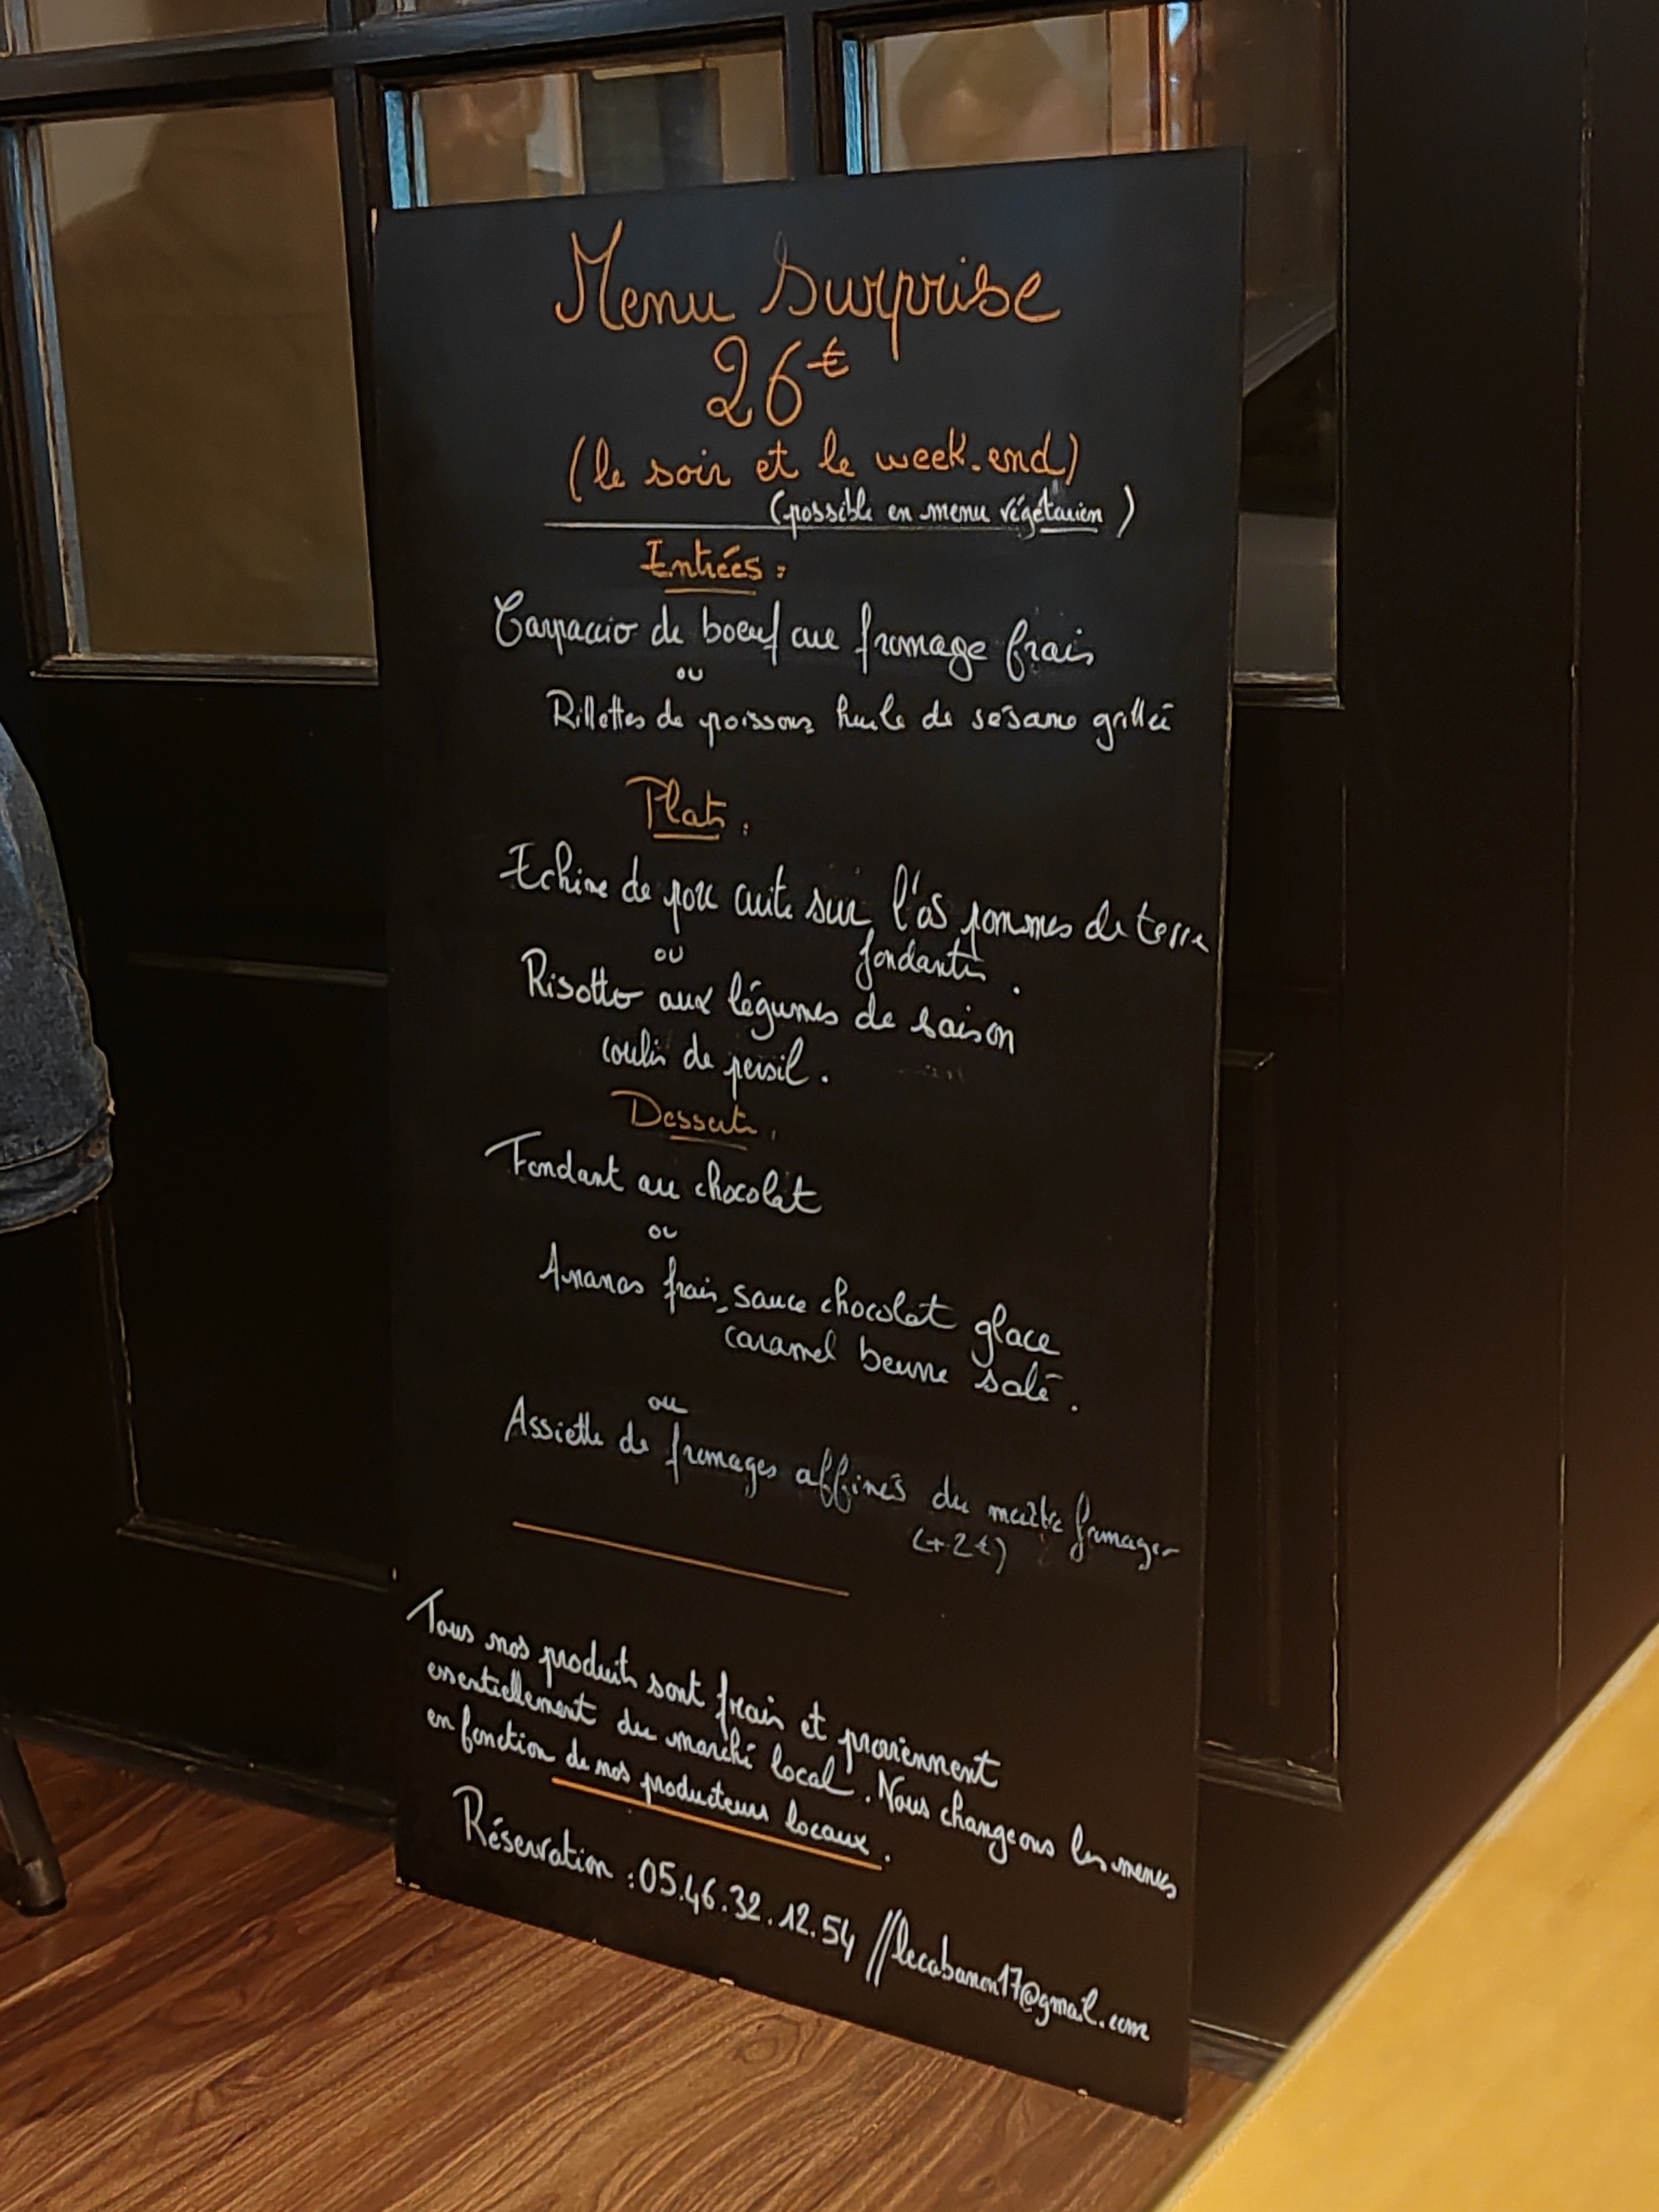 Menu Surprise
26€
(le soir et le week-end)
(possible en menu végétarien)
Entrées :
Carpaccio de boeuf au fromage frais
ou
Rillettes de poissons huile de sésame grillée
Plats :
Echine de porc cuite sur l'os pommes de terre
fondantes.
ou
Risotto aux légumes de saison
coulis de persil.
Desserts :
Fondant au chocolat
ou
Ananas frais, sauce chocolat glace
caramel beurre salé.
ou
Assiette de fromages affinés du maître fromager
(+2€)
Tous nos produits sont frais et proviennent
essentiellement du marché local. Nous changeons les menus
en fonction de nos producteurs locaux.
Réservation : 05.46.32.12.54 // lecabanon17@gmail.com